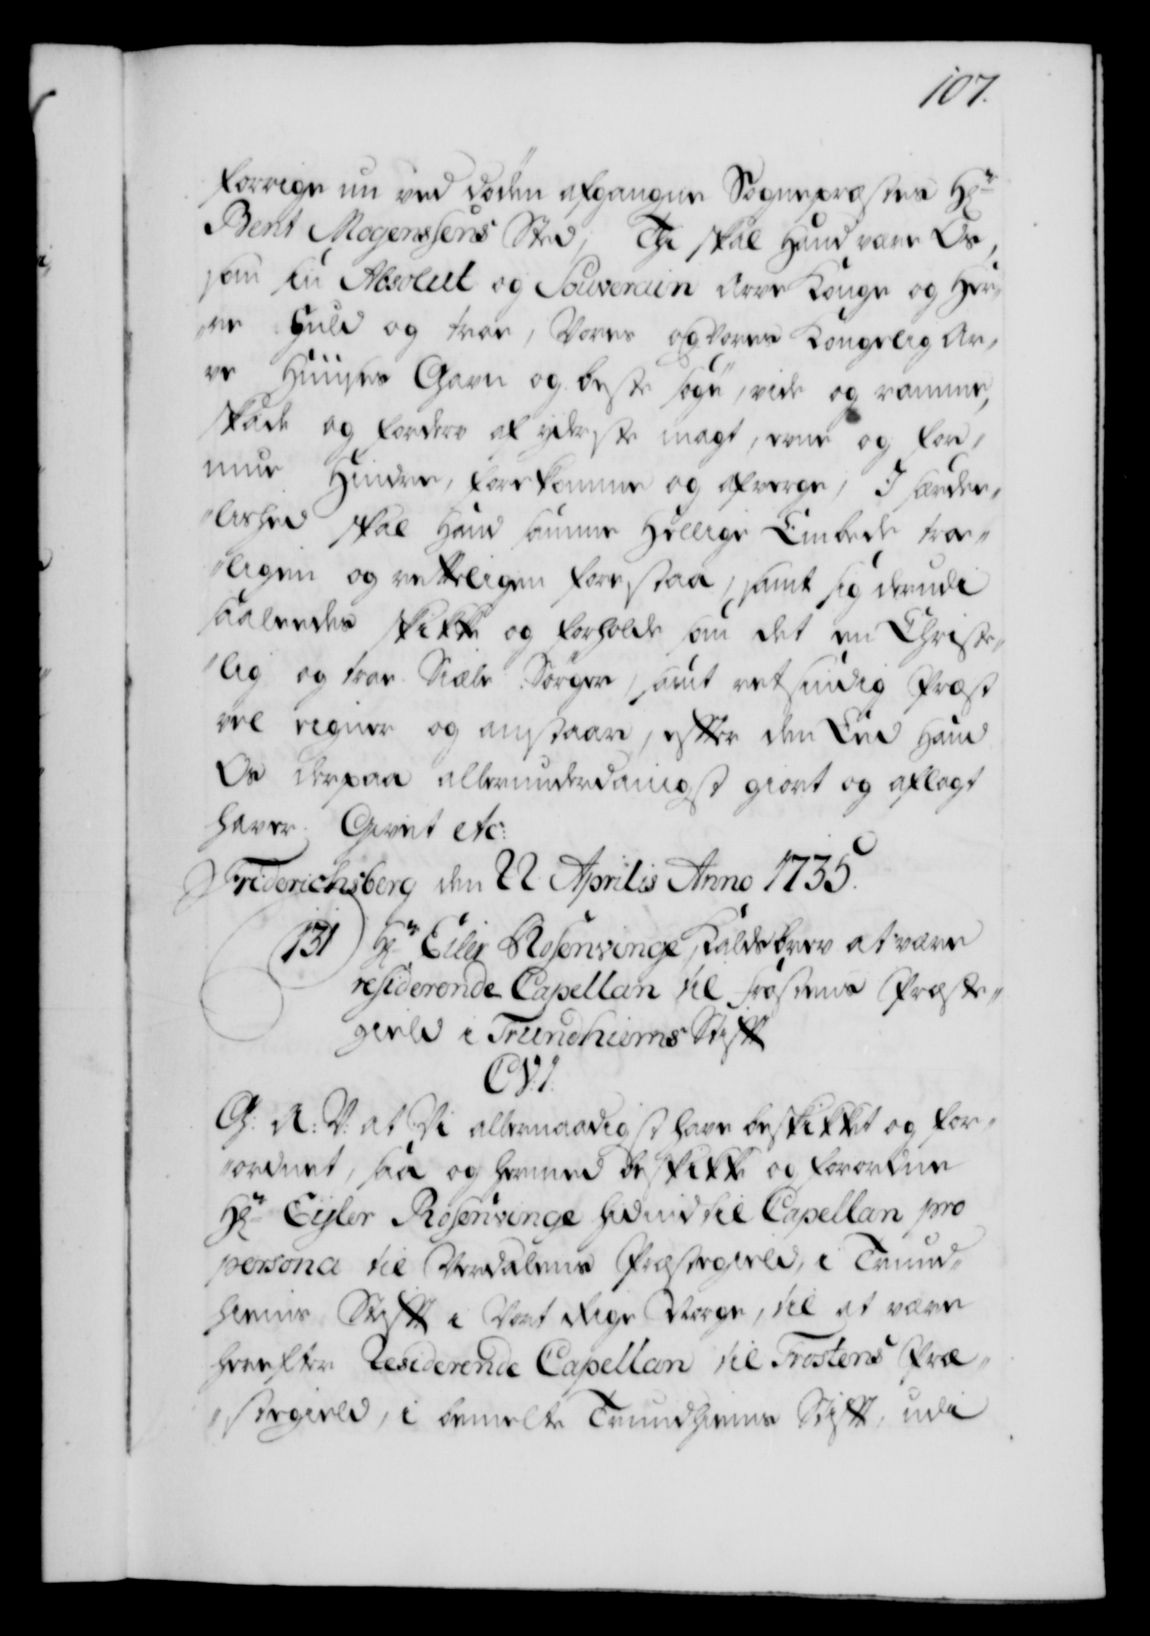 107.
forrige nu ved døden afgangne Sognepræstes Hr
Bent Mogenssens Sted; Thi skal Hand være Os,
som sin Absolut og Souverain Arve Konge og Her„
„re Huld og troe, Vores og Vores Kongelig Ar„
ve Huuses Gavn og beste søge, vide og ramme,
skade og forderv af yderste magt, evne og for„
mue Hindre, forekomme og afverge, I særde„
„leshed skal Hand samme Hellige Embede troe„
„ligen og retteligen forestaa, samt sig derudi
saaledes skikke og forholde som det en Christe„
„lig og troe Siæle Sørger, samt retsindig Præst
vel eigner og anstaaer, efter den Eed Hand
Os derpaa allerunderdanigst giort og aflagt
haver. Givet etc:
Friderichsberg den 22 Aprilis Anno 1735.
131 Hr Eiler Rosenvinge Kaldsbrev at være
residerende Capellan til Frostens Præste„
gield i Trundhiems Stift
C.VI.
G. A: V: at Vi allernaadigst have beskikket og for„
„ordnet, saa og hermed beskikke og forordne
Hr Eyler Rosenvinge hidindtil Capellan pro
persona til Verdalens Præstegield, i Trund„
hiems Stift i Vort Rige Norge, til at være
herefter Residerende Capellan til Frostens Præ„
„stegield, i bemelte Trundhiems Stift, udi